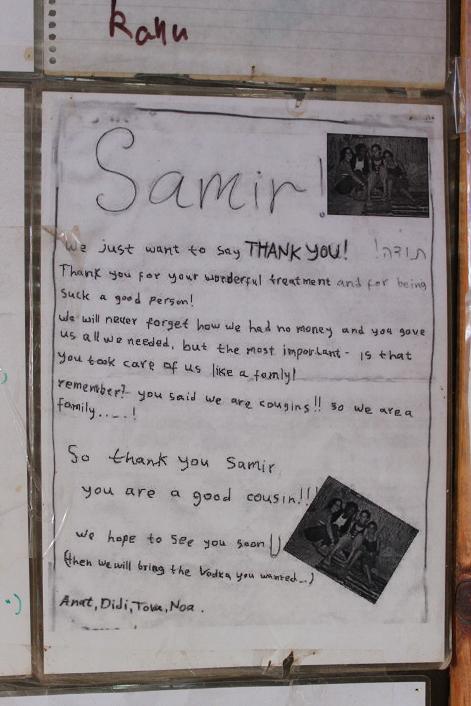 Kanu
Samir!
We just want to say THANK YOU! תודה!
Thank you for your wonderful treatment and for being
suck a good person!
we will never forget how we had no money and you gave
us all we needed, but the most important - is that
you took care of us like a family!
remember?- you said we are cousins!! so we are a
family....!
So thank you Samir
you are a good cousin!!!
we hope to see you soon U
(then we will bring the Vodka you wanted...)
Anat, Didi, Tova, Noa.